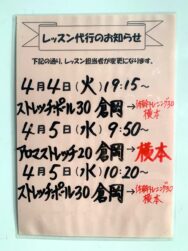 レッスン代行のお知らせ
下記の通り、レッスン担当者が変更になります。
4月4日(火)19:15〜
ストレッチポール30 倉岡→体幹トレーニング30
横本
4月5日(水)9:50〜
アロマストレッチ20 倉岡→横本
4月5日(水)10:20〜
ストレッチポール30 倉岡→体幹トレーニング30
横本